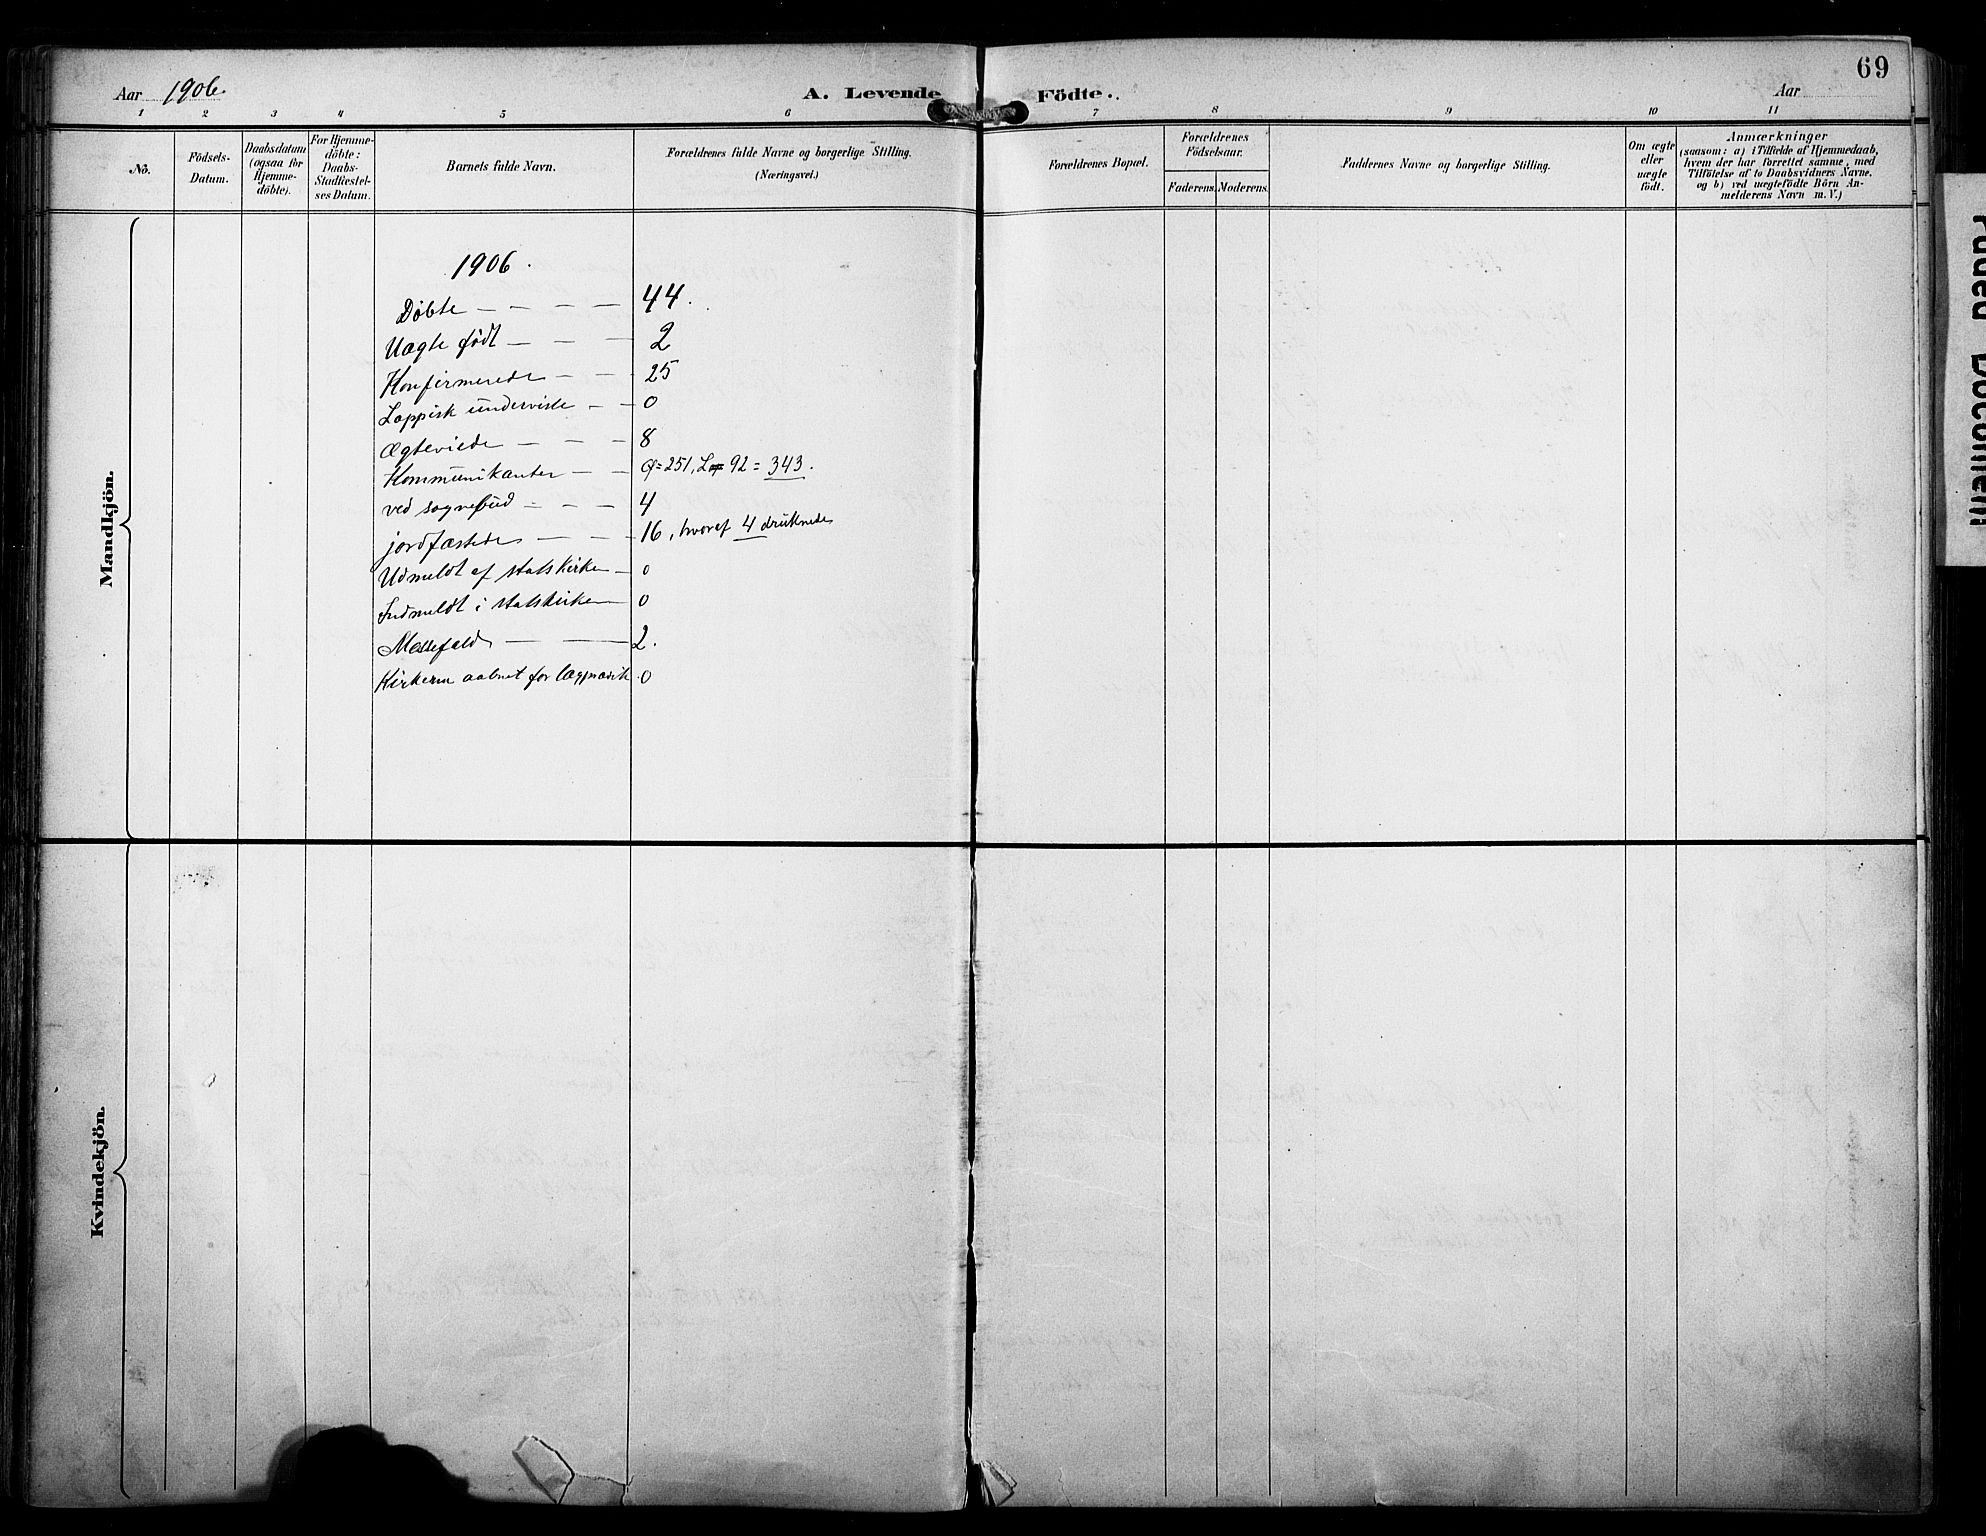 69
Aar 1906. A. Levende Födte. Aar
1 2 3 4 5 6 7 8 9 10 11
No.
Födsels-
Datum.
Daabsdatum
(ogsaa for
Hjemme-
döbte).
For Hjemme-
döbte:
Daabs-
Stadfæstel-
ses Datum.
Barnets fulde Navn.
Forældrenes fulde Navne og borgerlige Stilling.
(Næringsvei.)
Forældrenes Bopæl.
Forældrenes
Födselsaar.
Faderens. Moderens.
Faddernes Navne og borgerlige Stilling.
Om ægte
eller
uægte
födt.
Anmærkninger
(saasom: a) i Tilfælde af Hjemmedaab,
hvem der har forrettet samme, med
Tilföielse af to Daabsvidners Navne,
og b) ved uægtefödte Börn An-
melderens Navn m. V.)
Mandkjön.
1906.
Døbte — — — — 44.
Uægte født — — — 2
Konfirmerede — — 25
Lappisk underviste — — 0
Ægteviede — — — 8
Kommunikanter — — = 251, 92 = 343.
ved sognebud — — — 4
jordfæstede — — — 16, hvoraf 4 druknede
Udmeldt af statskirken — 0
Indmeldt i statskirken 0
Messefald — — 2.
Kirkerne aabnet for lægprædik. 0
Kvindekjön.